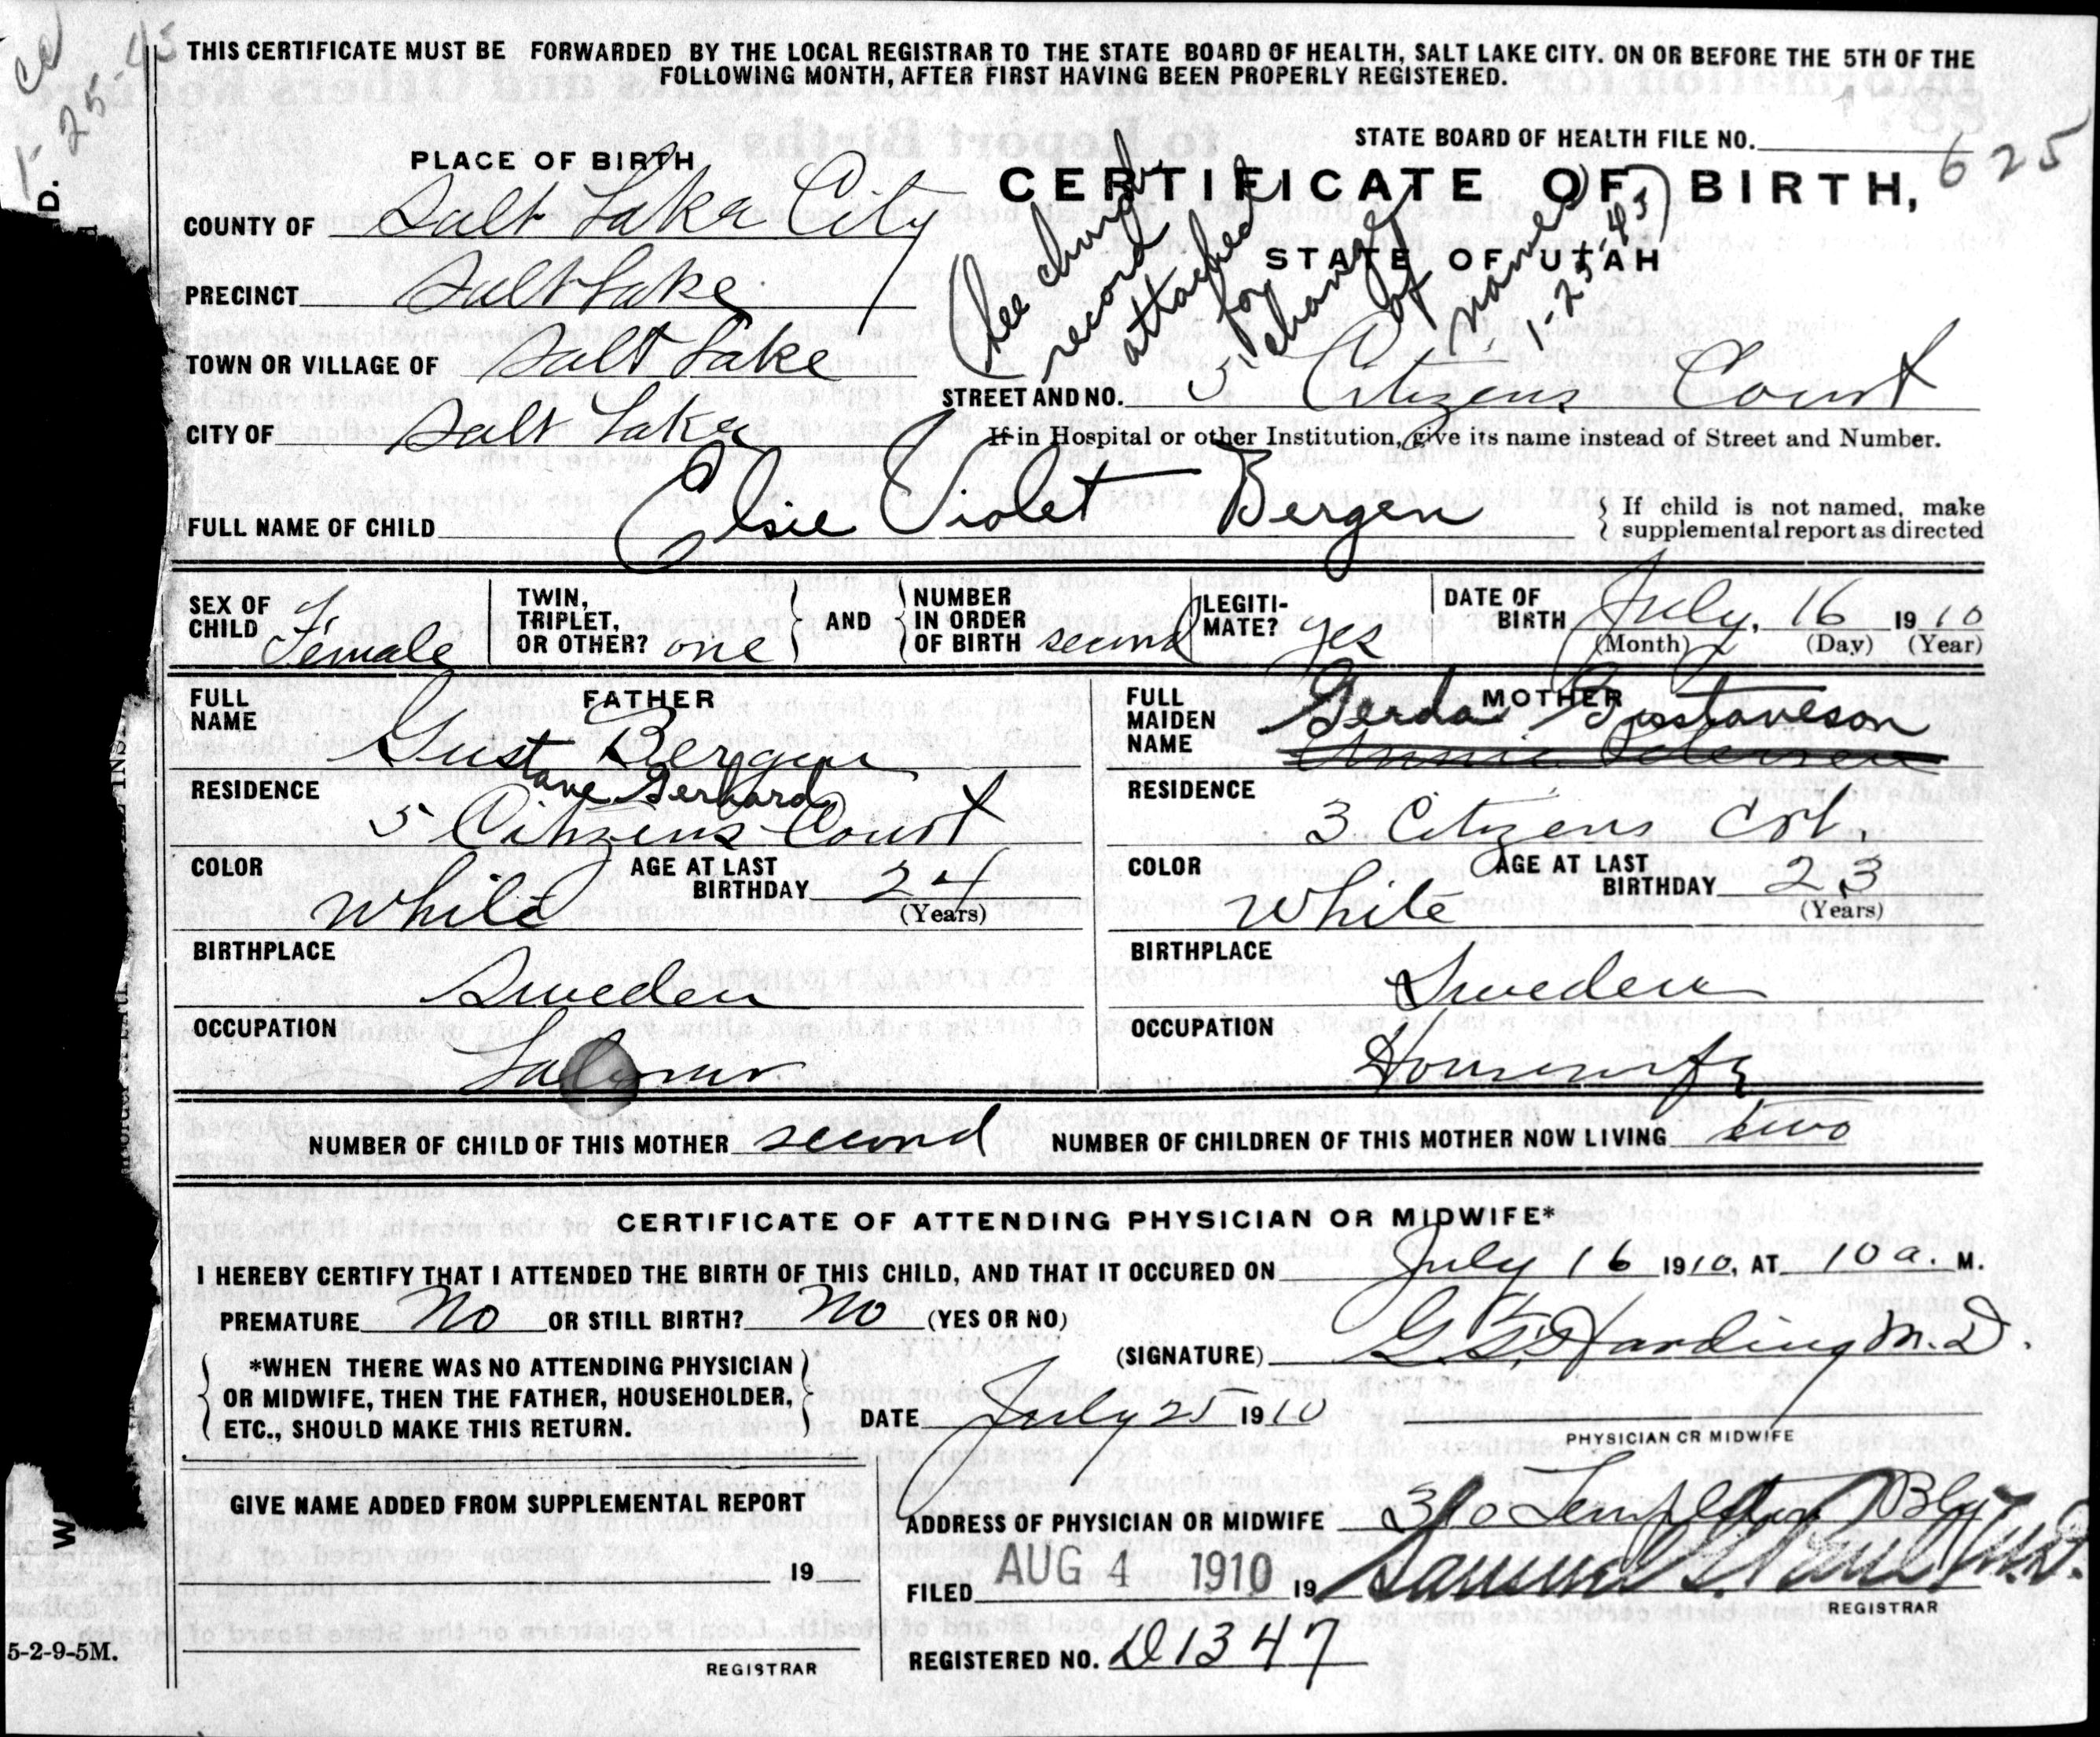 THIS CERTIFICATE MUST BE FORWARDED BY THE LOCAL REGISTRAR TO THE STATE BOARD OF HEALTH, SALT LAKE CITY. ON OR BEFORE THE 5TH OF THE
FOLLOWING MONTH, AFTER FIRST HAVING BEEN PROPERLY REGISTERED.
1-25-43
STATE BOARD OF HEALTH FILE NO. 625
PLACE OF BIRTH
CERTIFICATE OF BIRTH,
STATE OF UTAH
(See church record attached for change of names 1-25-43)
COUNTY OF Salt Lake City
PRECINCT Salt Lake
TOWN OR VILLAGE OF Salt Lake
STREET AND NO. 5 Citizens Court
CITY OF Salt Lake
If in Hospital or other Institution, give its name instead of Street and Number.
FULL NAME OF CHILD Elsie Violet Bergen
If child is not named, make
supplemental report as directed
SEX OF CHILD Female
TWIN, TRIPLET, OR OTHER? one
AND
NUMBER IN ORDER OF BIRTH second
LEGITI-MATE? yes
DATE OF BIRTH July, 16 1910
(Month) (Day) (Year)
FATHER
FULL NAME Gust Bergen
tave Gerhard
RESIDENCE 5 Citizens Court
COLOR White
AGE AT LAST BIRTHDAY 24
(Years)
BIRTHPLACE Sweden
OCCUPATION Laborer
MOTHER
FULL MAIDEN NAME Gerda Gustaveson
Annie Petersen
RESIDENCE 3 Citizens Crt.
COLOR White
AGE AT LAST BIRTHDAY 23
(Years)
BIRTHPLACE Sweden
OCCUPATION Housewife
NUMBER OF CHILD OF THIS MOTHER second
NUMBER OF CHILDREN OF THIS MOTHER NOW LIVING two
CERTIFICATE OF ATTENDING PHYSICIAN OR MIDWIFE*
I HEREBY CERTIFY THAT I ATTENDED THE BIRTH OF THIS CHILD, AND THAT IT OCCURED ON July 16 1910, AT 10 a. M.
PREMATURE No OR STILL BIRTH? No (YES OR NO)
(SIGNATURE) Harding M.D.
*WHEN THERE WAS NO ATTENDING PHYSICIAN
OR MIDWIFE, THEN THE FATHER, HOUSEHOLDER,
ETC., SHOULD MAKE THIS RETURN.
DATE July 25 1910
PHYSICIAN OR MIDWIFE
GIVE NAME ADDED FROM SUPPLEMENTAL REPORT
19
REGISTRAR
ADDRESS OF PHYSICIAN OR MIDWIFE 310 Templeton Blg
FILED AUG 4 1910 19 Samuel G. Paul M.D.
REGISTRAR
REGISTERED NO. D1347
5-2-9-5M.